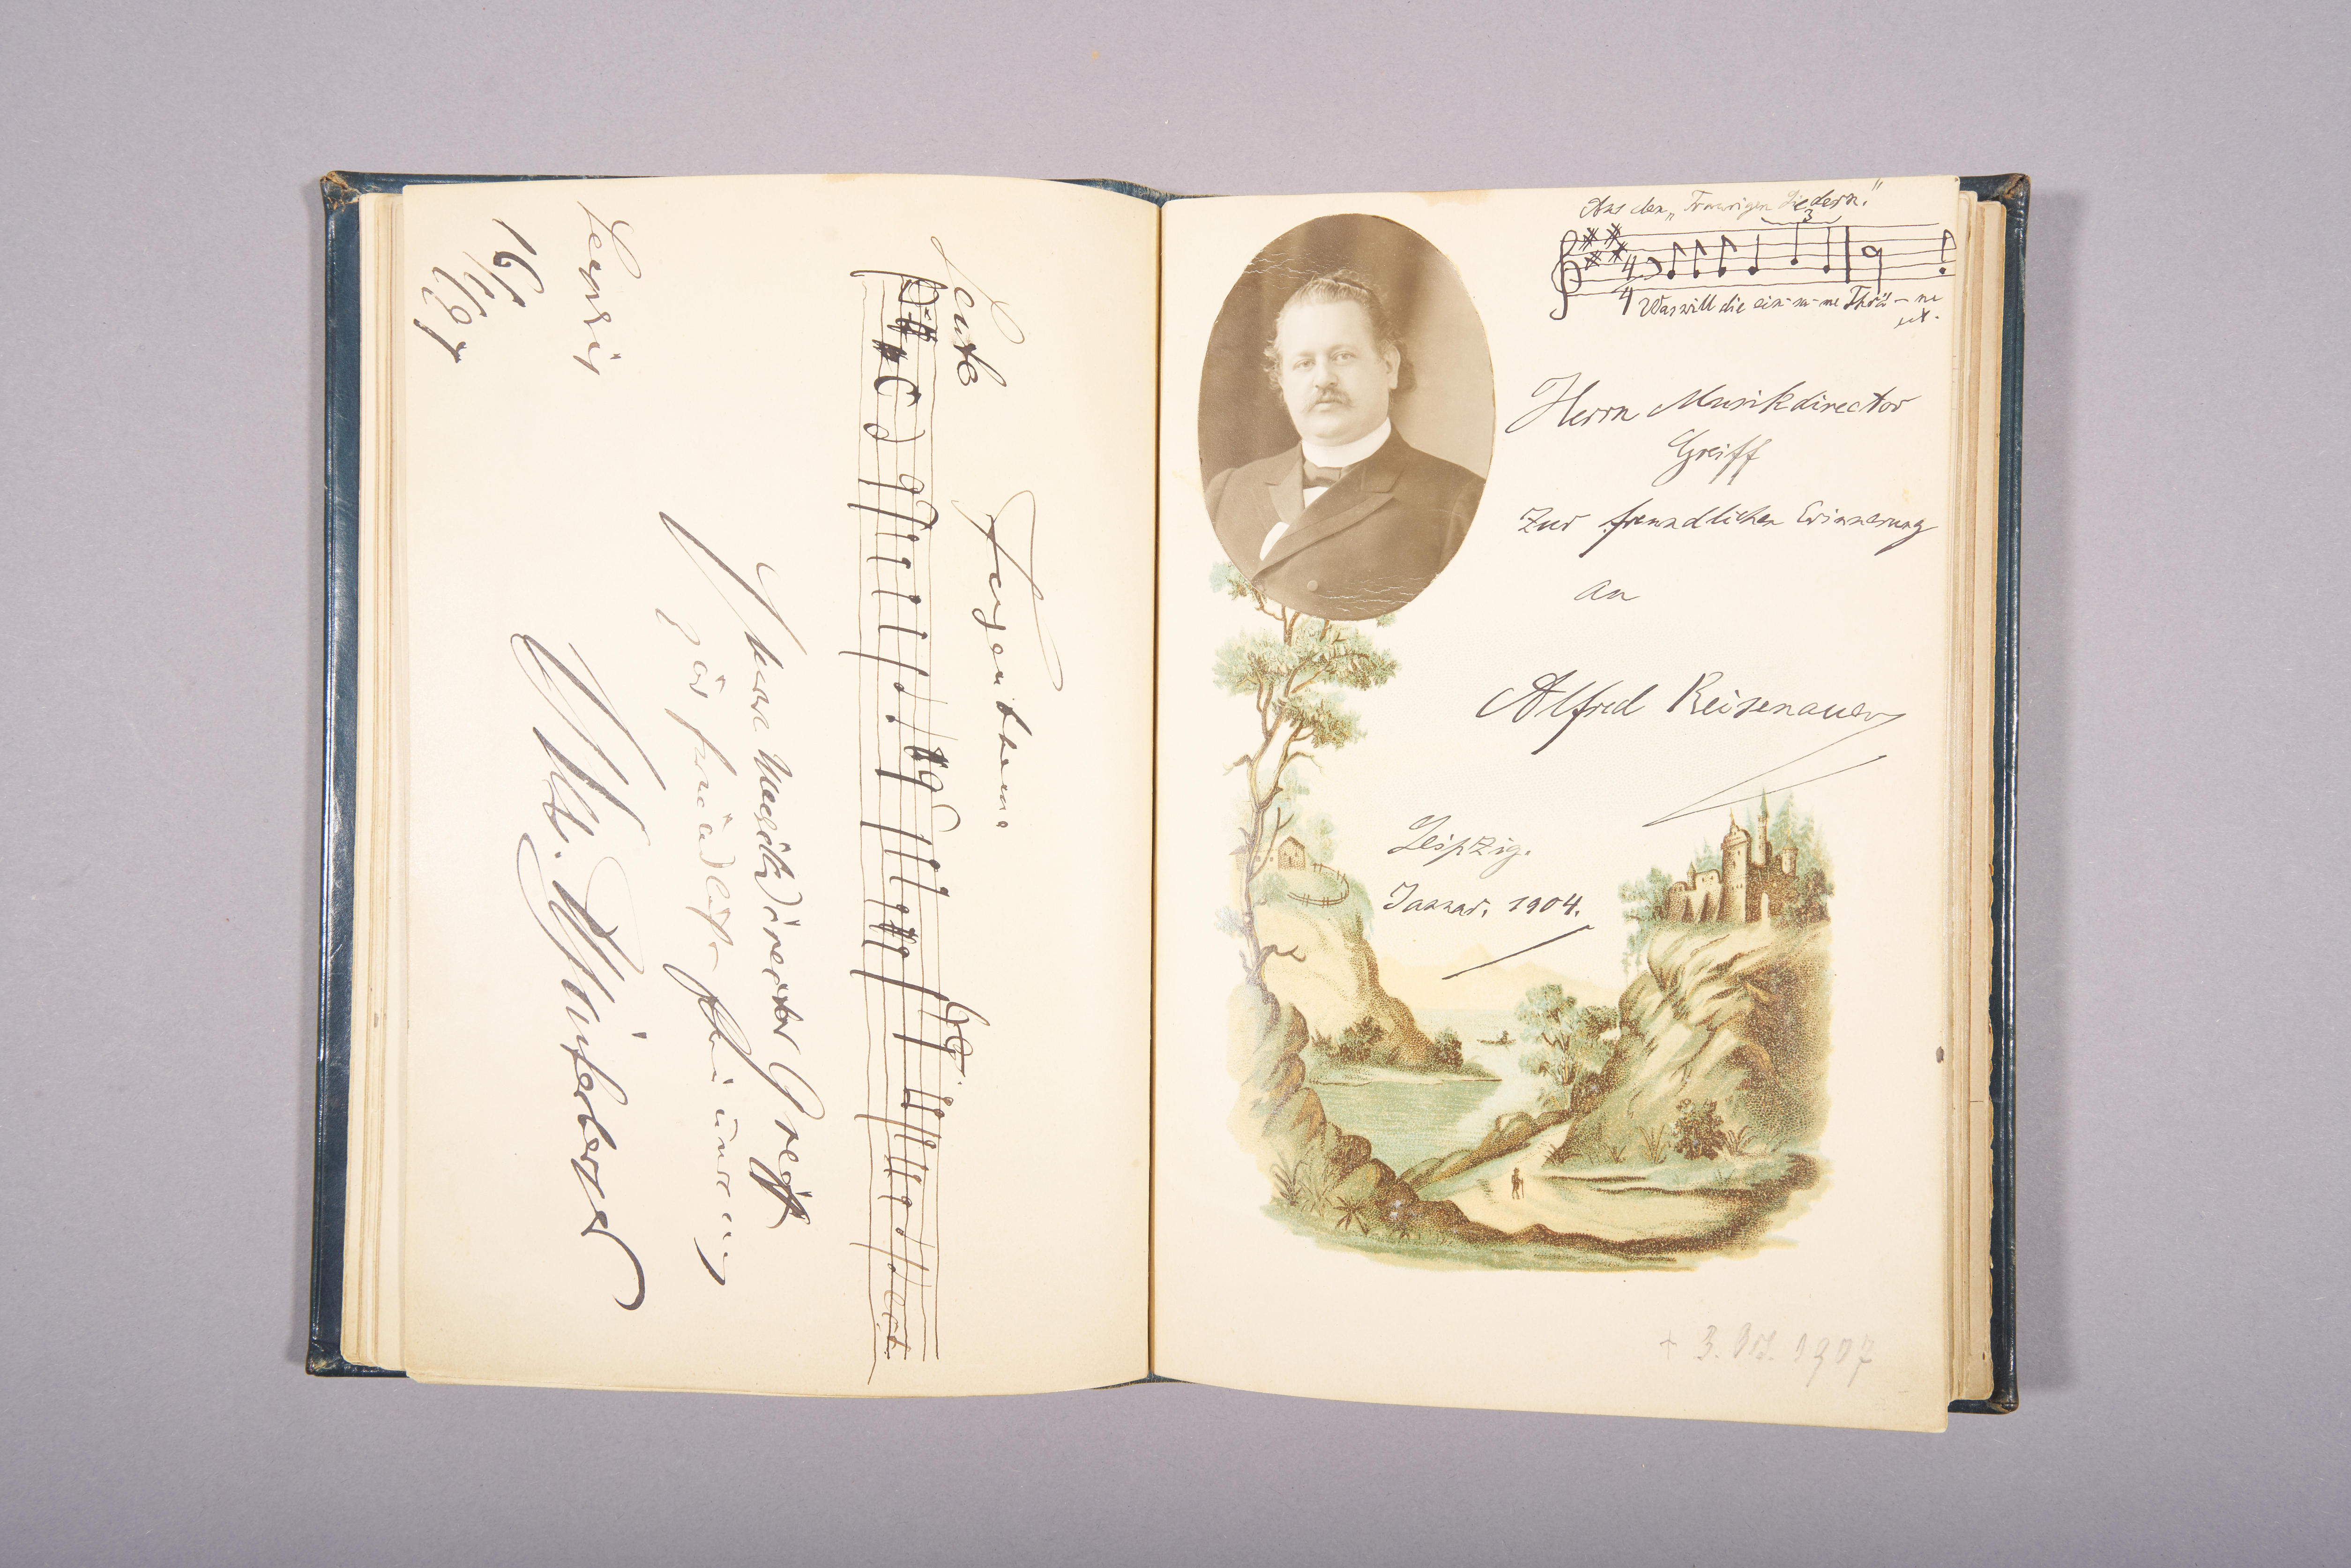 Fugenthema
etc.
Herrn Musikdirector Greiff
zur freundlichen Erinnerung
Winterberger
Leipzig
Aus den „Traurigen Liedern."
3
4
4
Was will die ein-sa-me Thrä-ne
etc.
Herrn Musikdirector
Greiff
zur freundlichen Erinnerung
an
Alfred Reisenauer
Leipzig.
Januar. 1904.
† 3. Oct. 1907